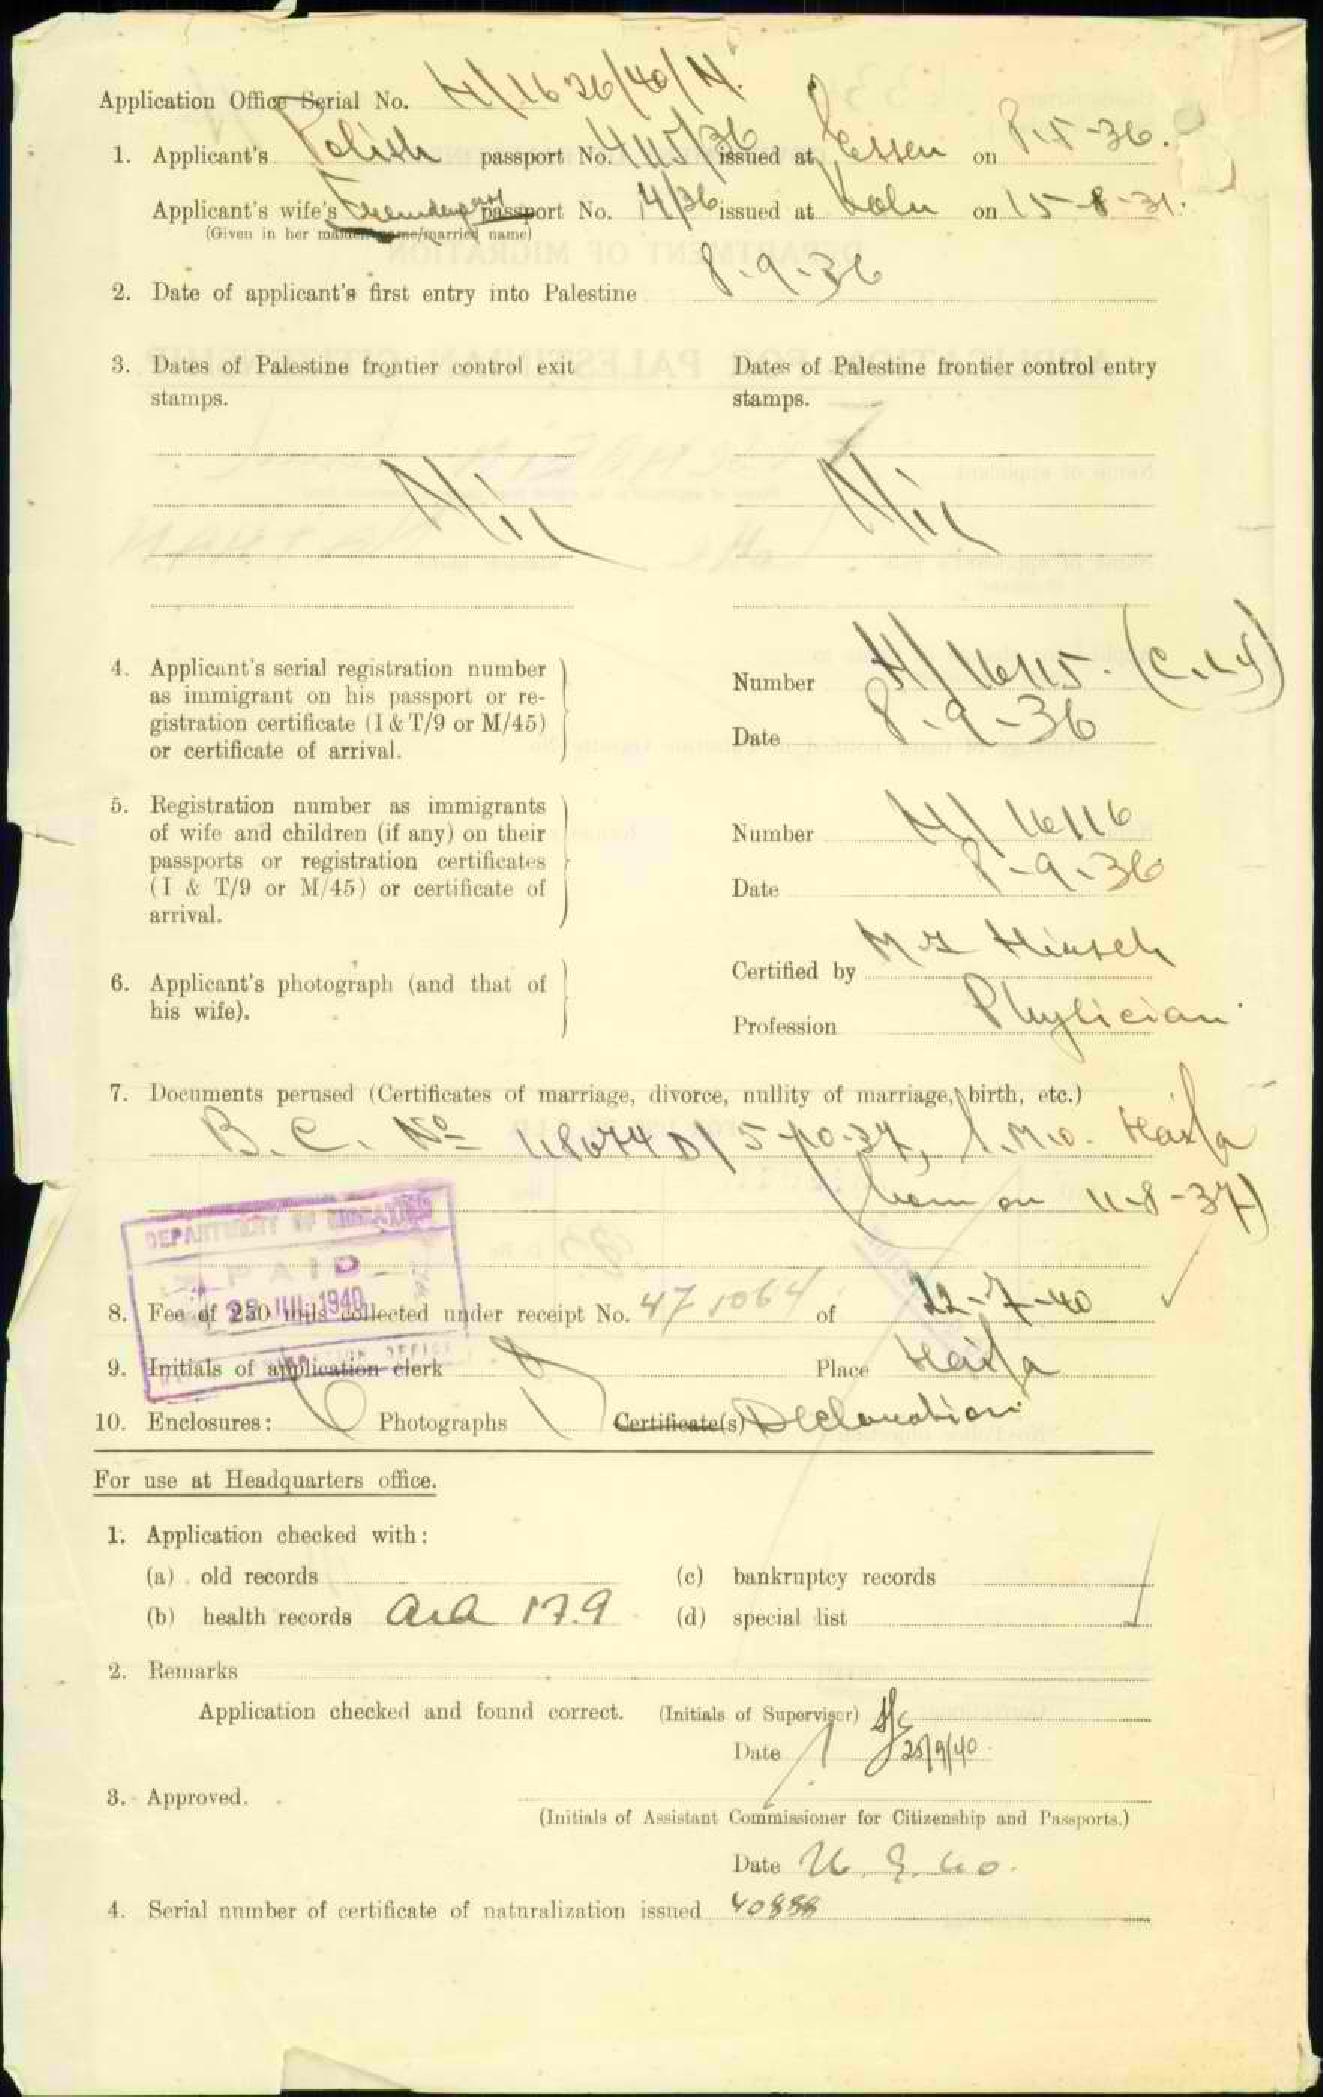 Application Office Serial No. H/1626/40/N.
1. Applicant's Polish passport No. 445/36 issued at Essen on 8-5-36.
Applicant's wife's passport No. 14/36 issued at Koln on 15-8-31.
(Given in her maiden name/married name)
2. Date of applicant's first entry into Palestine 8-9-36
3. Dates of Palestine frontier control exit stamps.
Dates of Palestine frontier control entry stamps.
Nil
Nil
4. Applicant's serial registration number
as immigrant on his passport or re-
gistration certificate (I & T/9 or M/45)
or certificate of arrival.
Number H/16115.
Date 8-9-36
5. Registration number as immigrants
of wife and children (if any) on their
passports or registration certificates
(I & T/9 or M/45) or certificate of
arrival.
Number H/16116
Date 8-9-36
6. Applicant's photograph (and that of
his wife).
Certified by Hirsch
Profession Phylician.
7. Documents perused (Certificates of marriage, divorce, nullity of marriage, birth, etc.)
B.C. No 118674 D/5-10-37, Haifa
(born on 11-8-37)
DEPARTMENT OF MIGRATION
PAID
JUL 1940
8. Fee of 250 mils collected under receipt No. 471064 of 22-7-40
9. Initials of application clerk Place Haifa
10. Enclosures: Photographs Certificate(s) Declaration.
For use at Headquarters office.
1. Application checked with:
(a) old records
(c) bankruptcy records
(b) health records 17.9
(d) special list
2. Remarks
Application checked and found correct. (Initials of Supervisor)
Date 25/9/40.
3. Approved.
(Initials of Assistant Commissioner for Citizenship and Passports.)
Date 26.9.40.
4. Serial number of certificate of naturalization issued 40888